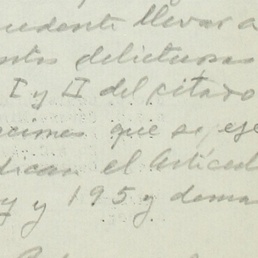 cedente llevar a
ntos delictuosos
I y II del citado
ciones que se eje
dican el Articul
y y 195 y dema